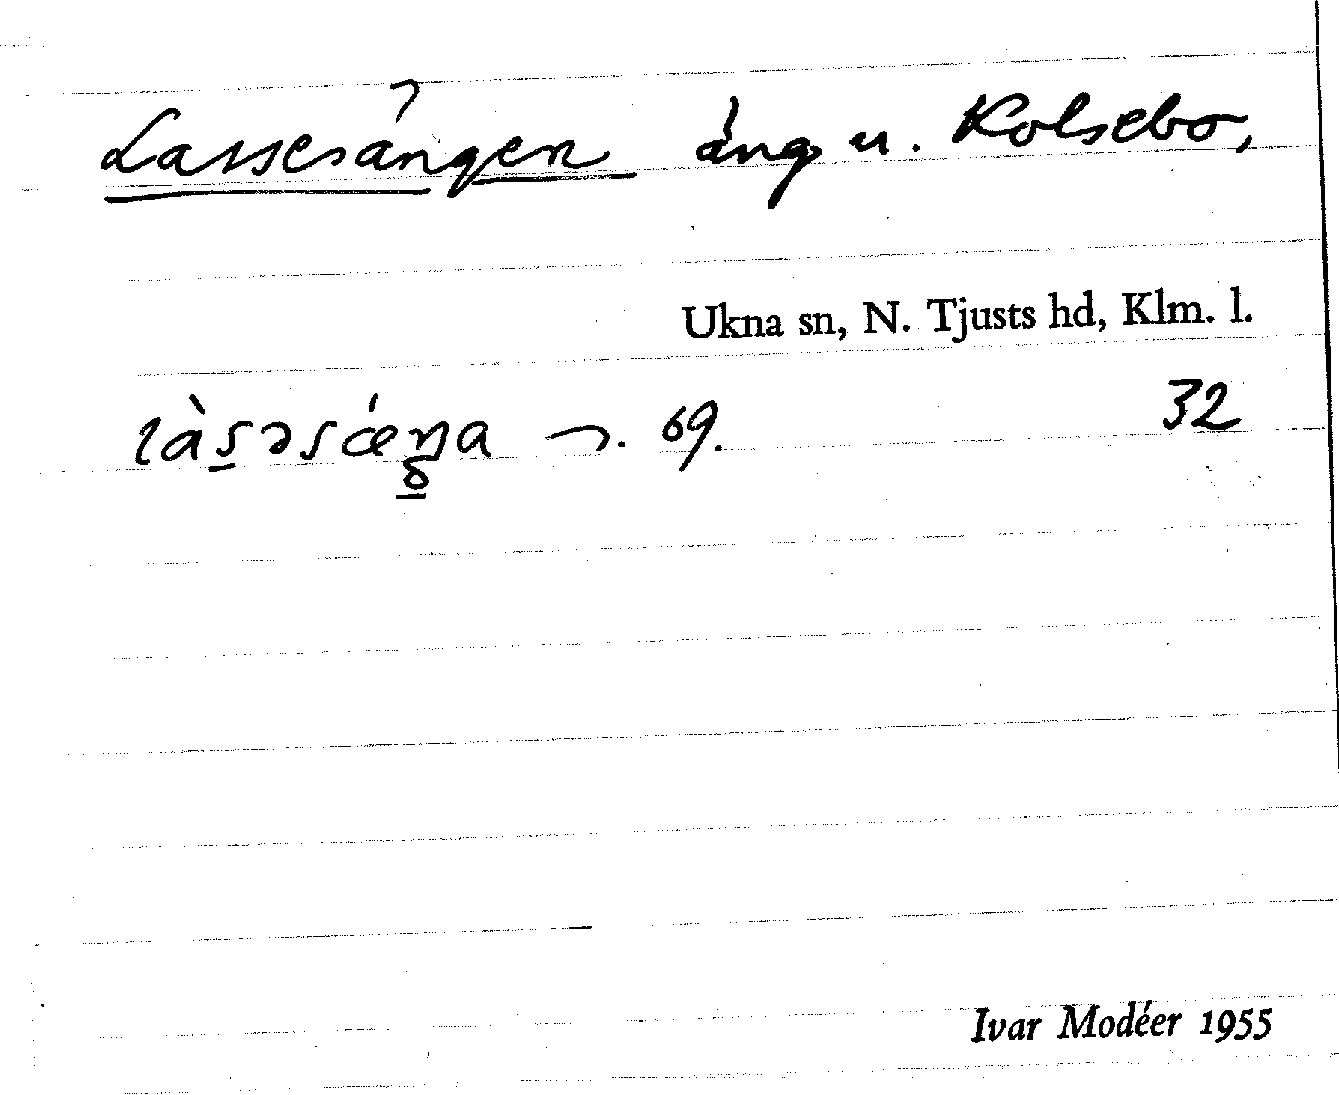 Lassesängen äng u. Kolsebo,
Ukna sn, N. Tjusts hd, Klm. l.
32
làs̠əsǽŋ̠a ¬. 69.
Ivar Modéer 1955